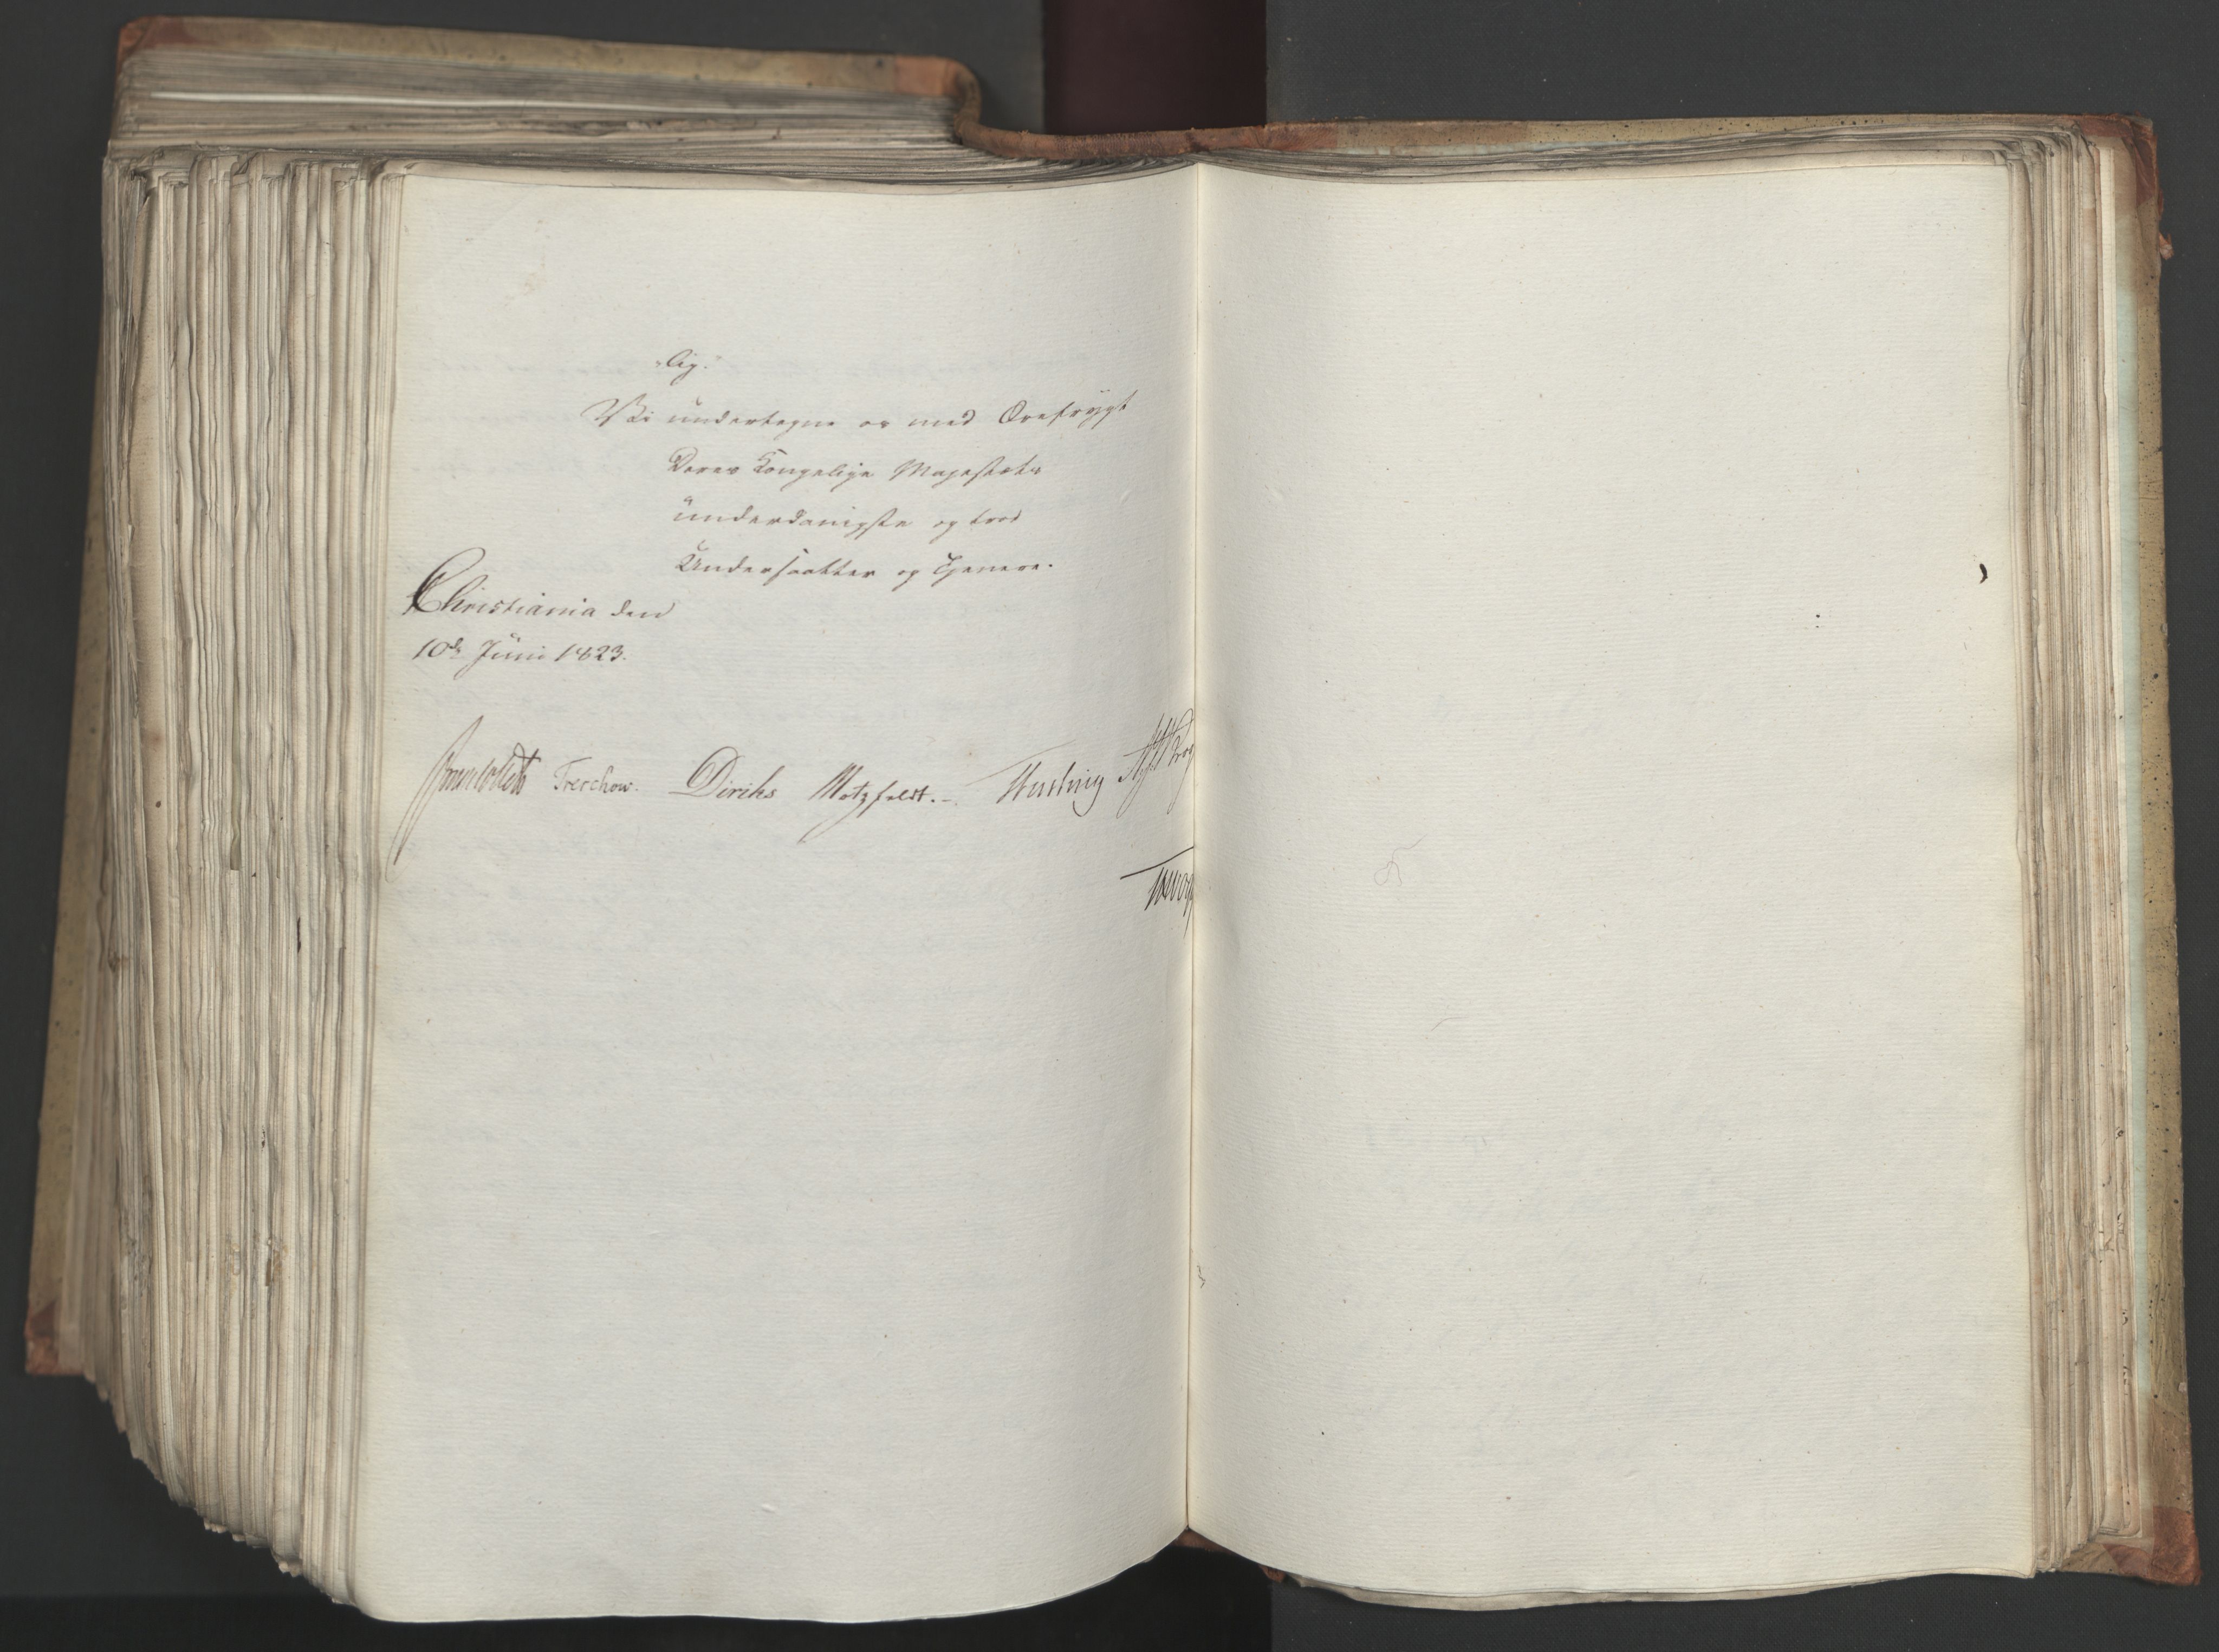 "lig."
Vi undertegne os med Ærefrygt
Deres Kongelige Majestæts
underdanigste og troe
Undersaatter og Tjenere.
Christiania den
10de Juni 1823.
Treschow. Diriks Motzfeldt.